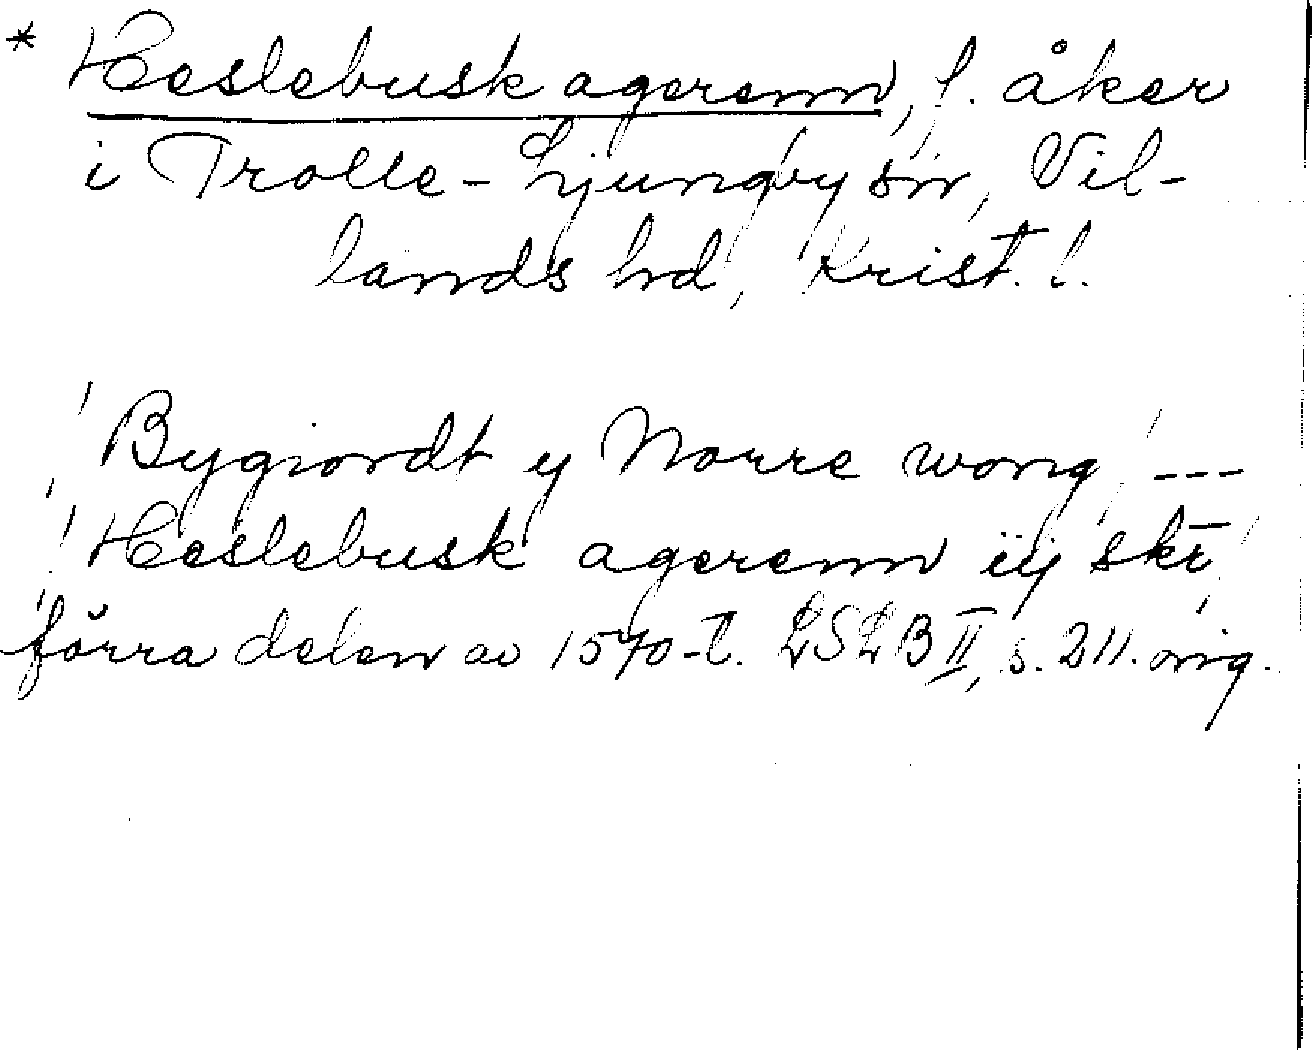 * Heslebusk agerenn, f. åker
i Trolle-Ljungby sn, Vil-
lands hd, Krist. l.
Bygiordt y Norre wong ---
Heslebusk agerenn iij skr
förra delen av 1570-t. LSLB II, s. 211. orig.